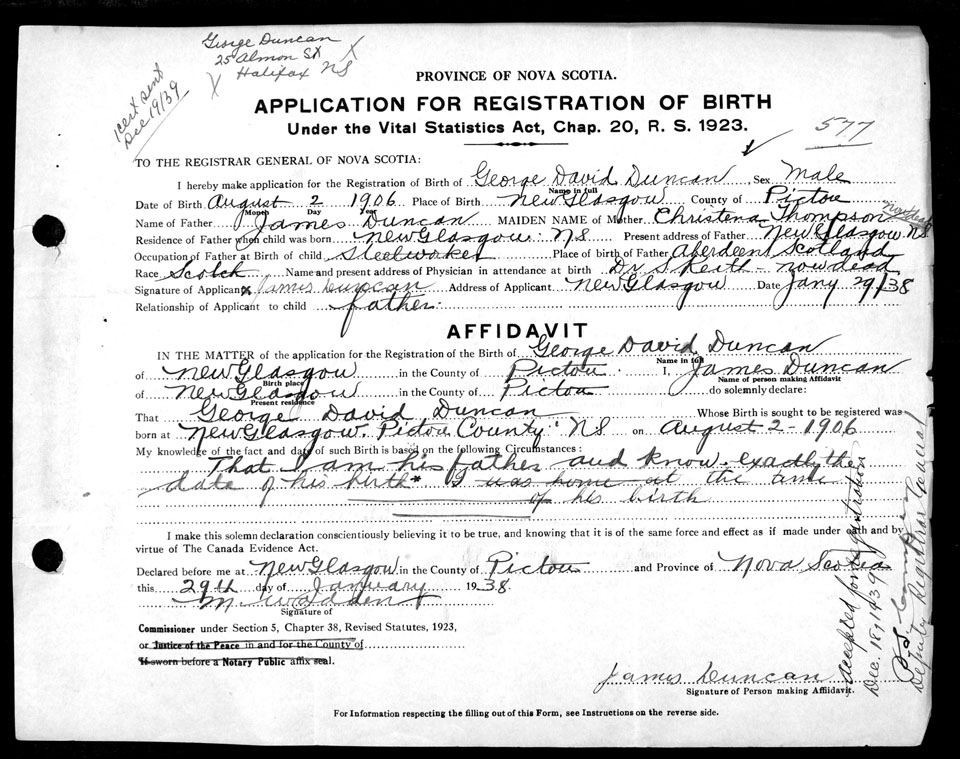 George Duncan
25 Almon St
Halifax NS
1 cert sent
Dec 19/39
PROVINCE OF NOVA SCOTIA.
APPLICATION FOR REGISTRATION OF BIRTH
Under the Vital Statistics Act, Chap. 20, R. S. 1923.
577
TO THE REGISTRAR GENERAL OF NOVA SCOTIA:
I hereby make application for the Registration of Birth of George David Duncan Sex Male
Name in full
Date of Birth August 2 1906 Place of Birth New Glasgow County of Pictou
Month Day Year
Name of Father James Duncan MAIDEN NAME of Mother Christena Thompson
Residence of Father when child was born New Glasgow NS Present address of Father New Glasgow NS
Occupation of Father at Birth of child Steelworker Place of birth of Father Aberdeen Scotland
Race Scotch Name and present address of Physician in attendance at birth Dr S. Keith - now dead
Signature of Applicant x James Duncan Address of Applicant New Glasgow Date Jany 29/38
Relationship of Applicant to child father
AFFIDAVIT
IN THE MATTER of the application for the Registration of the Birth of George David Duncan
Name in full
of New Glasgow in the County of Pictou I, James Duncan
Birth place Name of person making Affidavit
of New Glasgow in the County of Pictou do solemnly declare:
Present residence
That George David Duncan Whose Birth is sought to be registered was
born at New Glasgow, Pictou County NS on August 2 - 1906
My knowledge of the fact and date of such Birth is based on the following Circumstances:
That I am his father and know exactly the
date of his birth I was home at the time
of his birth
I make this solemn declaration conscientiously believing it to be true, and knowing that it is of the same force and effect as if made under oath and by
virtue of The Canada Evidence Act.
Declared before me at New Glasgow in the County of Pictou and Province of Nova Scotia
this 29th day of January 1938
Signature of
Commissioner under Section 5, Chapter 38, Revised Statutes, 1923,
or Justice of the Peace in and for the County of
If sworn before a Notary Public affix seal.
James Duncan
Signature of Person making Affidavit.
For Information respecting the filling out of this Form, see Instructions on the reverse side.
Accepted for registration
Dec. 18, 1939
Deputy Registrar General